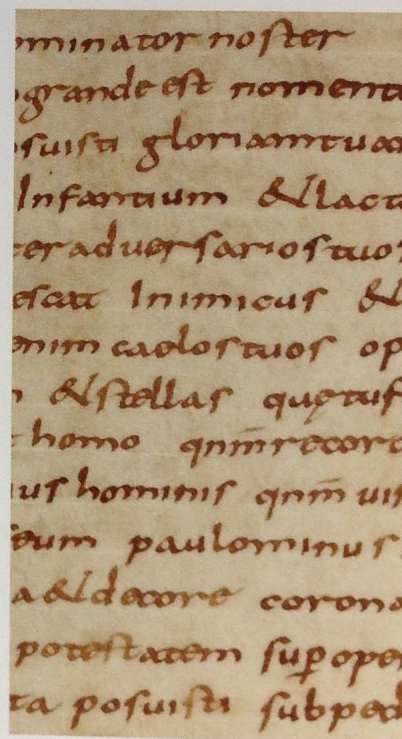 ominator noster
grande est nomen tu
suisti gloriam tuam
Infantium & lact
ter adversarios tuos
escat Inimicus &
enim caelos tuos op
& stellas quę tu f
homo qnm̄ recor
ius hominis qnm̄ vis
eum paulo minus
a & decore corona
potestatem sup̄ ope
ta posuisti sub ped